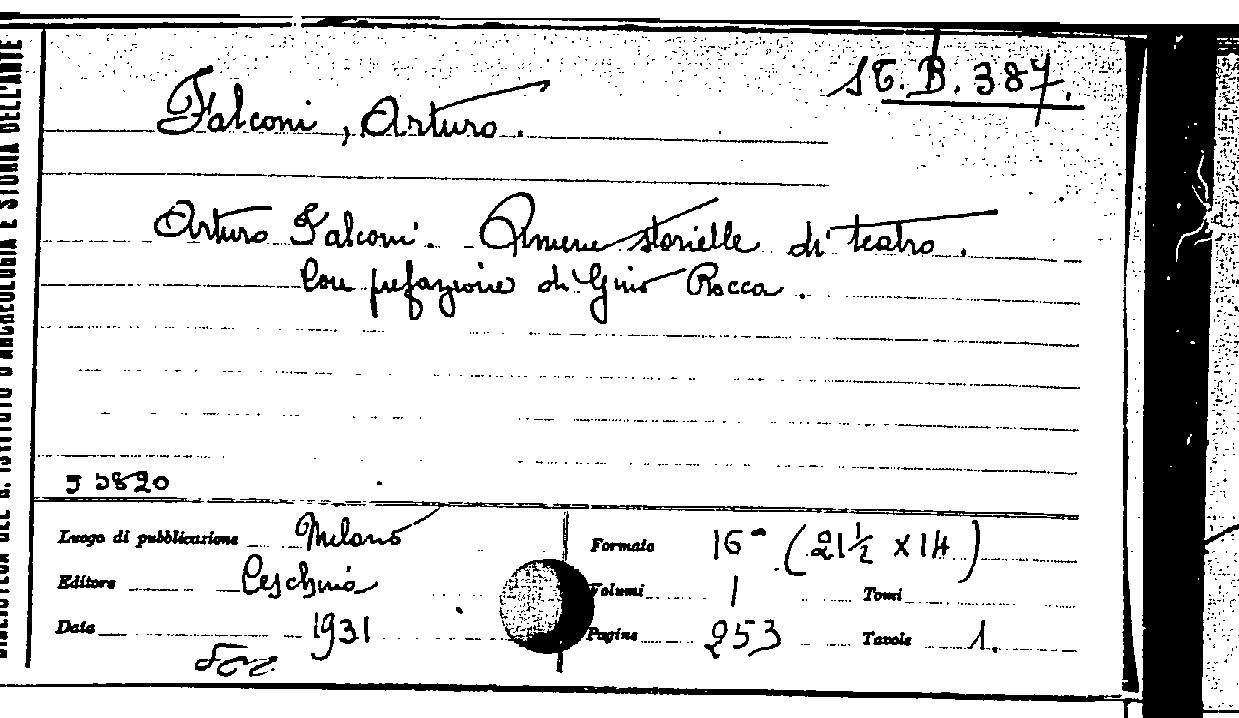 ST. B. 387.
Falconi, Arturo.
Arturo Falconi. Amene storielle di teatro.
Con prefazione di Gino Rocca.
5820
Luogo di pubblicazione Milano
Editore Ceschina
Data 1931
Formato 16° (21½ x 14)
Volumi 1 Tomi
Pagine 253 Tavole 1.
BIBLIOTECA DEL R. ISTITUTO D'ARCHEOLOGIA E STORIA DELL'ARTE